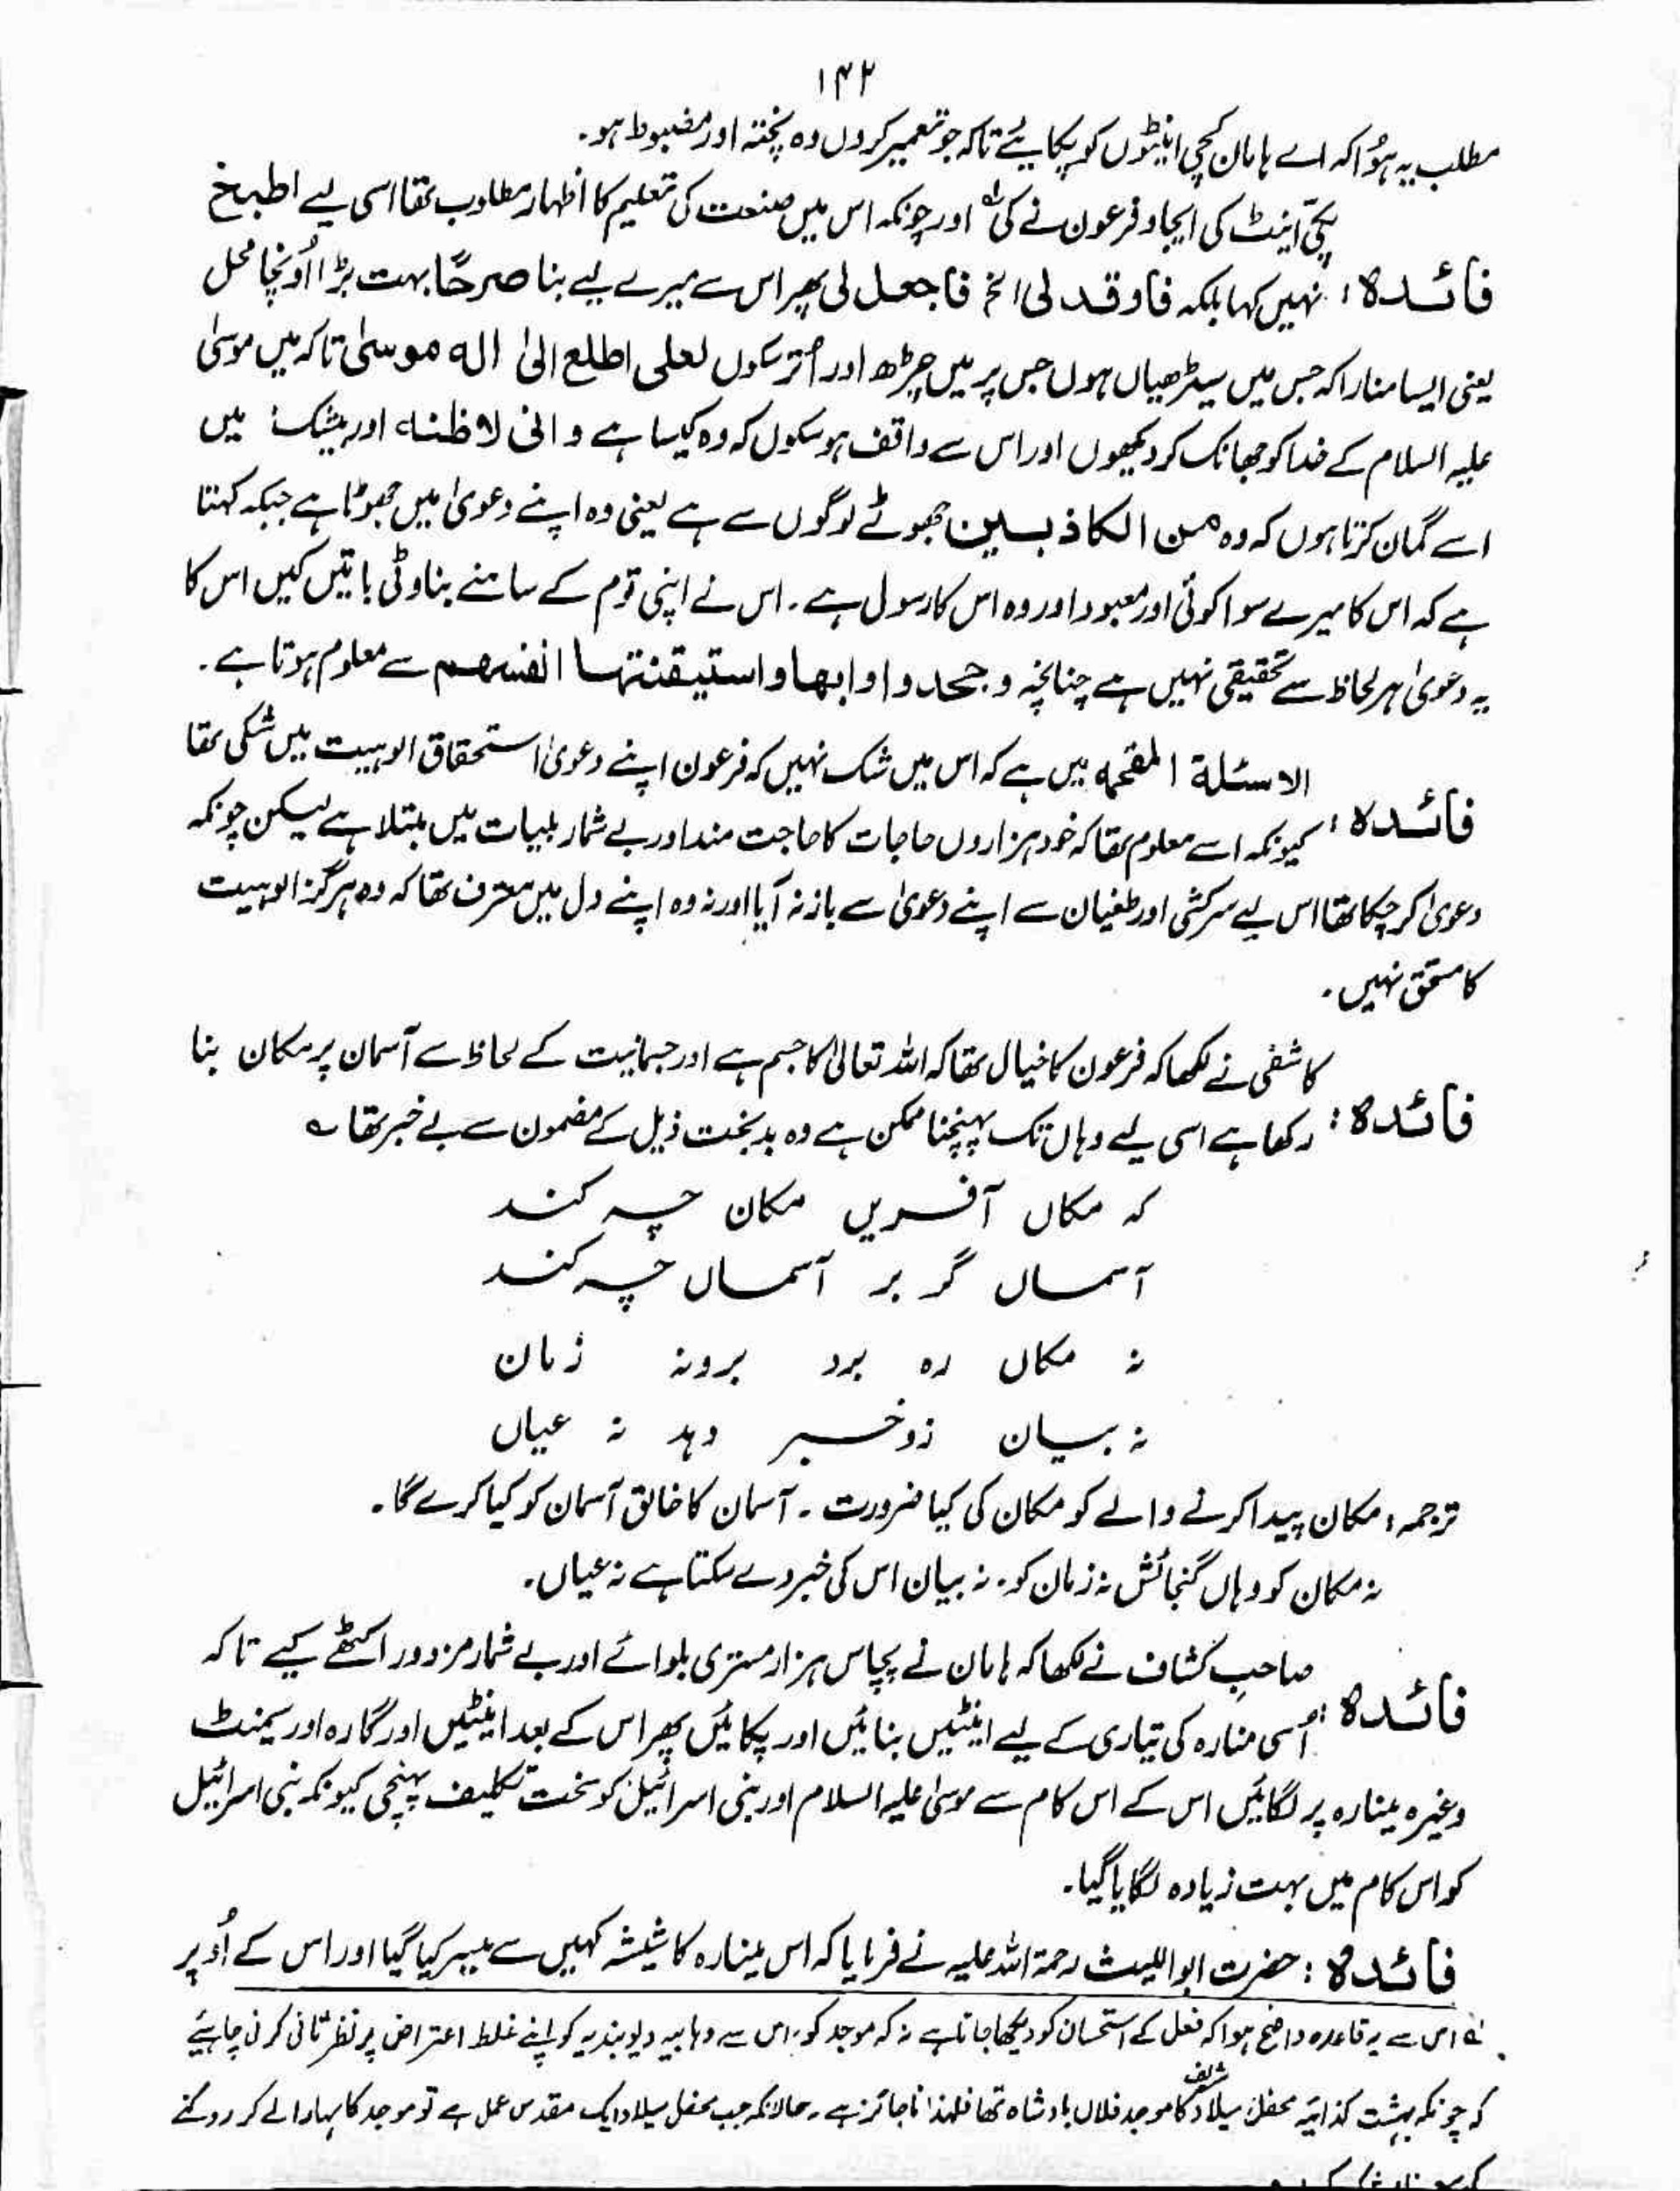 ۱۴۲
مطلب یہ ہوُا کہ اے ہامان کچی اینٹوں کو پکایئے تاکہ جو تعمیر کروں وہ پختہ اور مضبوط ہو۔
پکّی اینٹ کی ایجاد فرعون نے کی لہ اور چونکہ اس میں صنعت کی تعلیم کا اظہار مطلوب تھا اسی لیے اطبخ
فائدہ : نہیں کہا بلکہ فاوقد لی الخ فاجعل لی پھر اس سے میرے لیے بنا صرحًا بہت بڑا اُونچا محل
یعنی ایسا منارا کہ جس میں سیڑھیاں ہوں جس پر میں چڑھ اور اُتر سکوں لعلی اطلع الیٰ الہ موسیٰ تاکہ میں موسیٰ
علیہ السلام کے خدا کو جھانک کر دیکھوں اور اس سے واقف ہو سکوں کہ وہ کیسا ہے و انی لاظنہ اور بیشک میں
اسے گمان کرتا ہوں کہ وہ من الکاذبین جھوٹے لوگوں سے ہے یعنی وہ اپنے دعویٰ میں جھوٹا ہے جبکہ کہتا
ہے کہ اس کا میرے سوا کوئی اور معبود اور وہ اس کا رسول ہے۔ اس نے اپنی قوم کے سامنے بناوٹی باتیں کیں اس کا
یہ دعویٰ ہر لحاظ سے تحقیقی نہیں ہے چنانچہ وجحدوا وابھا واستیقنتہا انفسھم سے معلوم ہوتا ہے۔
الاسئلة المقحمه میں ہے کہ اس میں شک نہیں کہ فرعون اپنے دعویٰ استحقاق الوہیت میں شکی تھا
فائدہ : کیونکہ اسے معلوم تھا کہ خود ہزاروں حاجات کا حاجت مند اور بے شمار بلیات میں مبتلا ہے لیکن چونکہ
دعویٰ کر چکا تھا اس لیے سرکشی اور طغیان سے اپنے دعویٰ سے باز نہ آیا اور نہ وہ اپنے دل میں معترف تھا کہ وہ ہرگز الوہیت
کا مستحق نہیں۔
کاشفی نے لکھا کہ فرعون کا خیال تھا کہ اللہ تعالیٰ کا جسم ہے اور جسمانیت کے لحاظ سے آسمان پر مکان بنا
فائدہ : رکھا ہے اسی لیے وہاں تک پہنچنا ممکن ہے وہ بدبخت ذیل کے مضمون سے بے خبر تھا ؎
کہ مکاں آفریں مکان چہ کند
آسماں گر بر آسماں چہ کند
نہ مکاں رہ برد برونہ زمان
نہ بیان زو خبر دہد نہ عیاں
ترجمہ : مکان پیدا کرنے والے کو مکان کی کیا ضرورت ۔ آسمان کا خالق آسمان کو کیا کرے گا۔
نہ مکان کو وہاں گنجائش نہ زمان کو۔ نہ بیان اس کی خبر دے سکتا ہے نہ عیاں۔
صاحبِ کشاف نے لکھا کہ ہامان نے پچاس ہزار مستری بلوائے اور بے شمار مزدور اکٹھے کیے تاکہ
فائدہ : اُسی منارہ کی تیاری کے لیے اینٹیں بنائیں اور پکائیں پھر اس کے بعد اینٹیں اور گارہ اور سیمنٹ
وغیرہ مینارہ پر لگائیں اس کے اس کام سے موسیٰ علیہ السلام اور بنی اسرائیل کو سخت تکلیف پہنچی کیونکہ بنی اسرائیل
کو اس کام میں بہت زیادہ لگایا گیا۔
فائدہ : حضرت ابو اللیث رحمۃ اللہ علیہ نے فرمایا کہ اس مینارہ کا شیشہ کہیں سے میسر کیا گیا اور اس کے اُوپر
لہ اس سے یہ قاعدہ واضح ہوا کہ فعل کے استحسان کو دیکھا جاتا ہے نہ کہ موجد کو، اس سے وہابیہ دیوبندیہ کو اپنے غلط اعتراض پر نظر ثانی کرنی چاہیئے
کہ چونکہ بہشت کذائیہ محفل میلاد شریف کا موجد فلاں بادشاہ تھا فلہٰذا ناجائز ہے۔ حالانکہ جب محفل میلاد ایک مقدس عمل ہے تو موجد کا سہارا لے کر روکنے